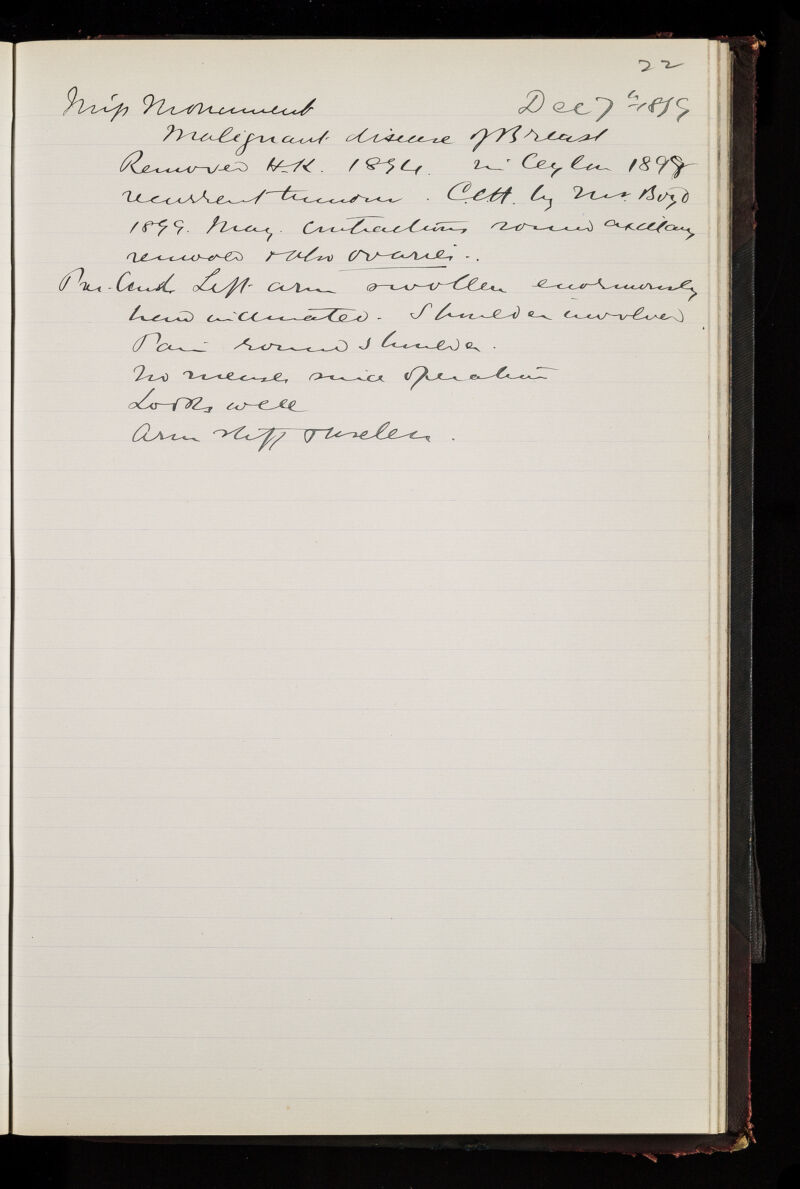 22
Miss Monument Dec 7th 1899
Malignant disease of Breast
Removed H.K. 1894. in Ceylon 1898
recurrent tumour. C.C.H. by Mr Boyd
1899. May. contractions round axillary
removed & also ovaries..
Pres. Cond. Left arm swollen enormously
hard indurated. Shoulder involved.
Pain round shoulder.
No menses since operation
Looks well
Arm stiff & useless.